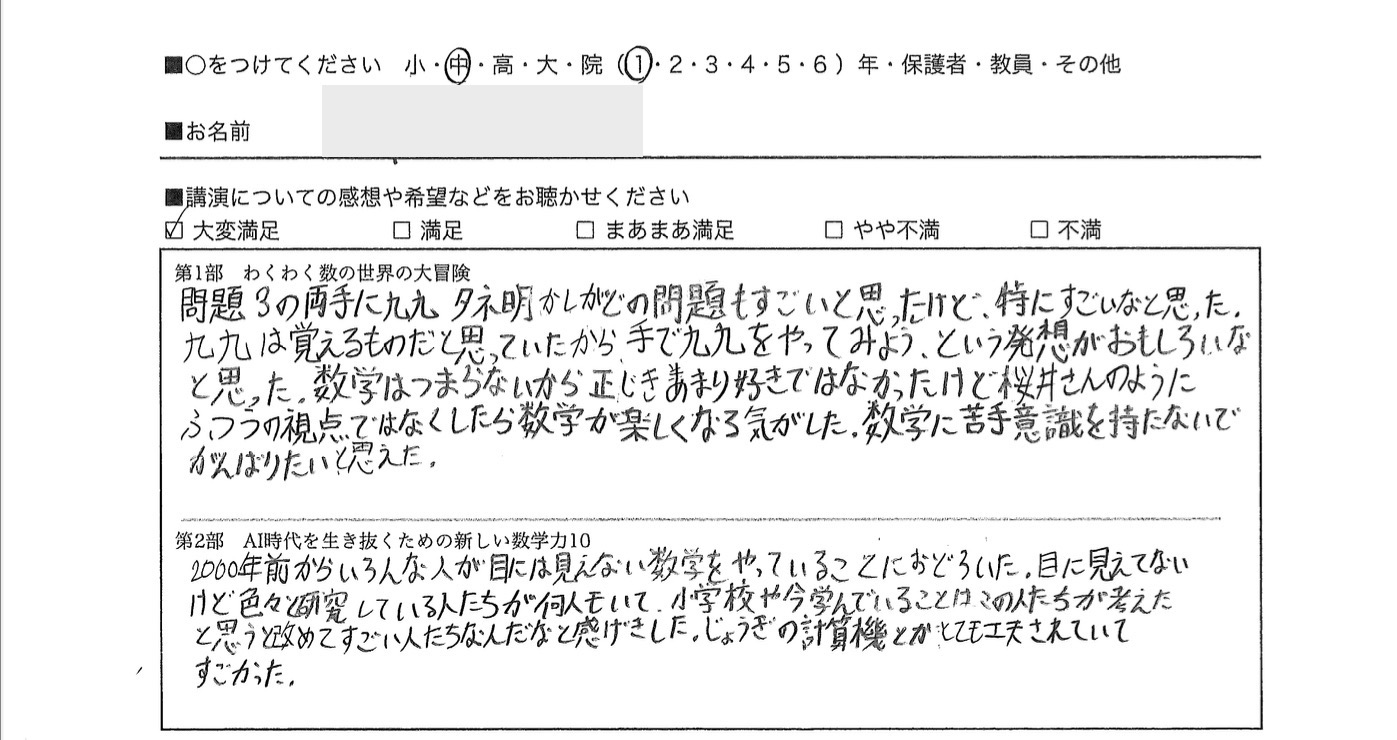 ■○をつけてください　小・中・高・大・院（1・2・3・4・5・6）年・保護者・教員・その他
■お名前
■講演についての感想や希望などをお聴かせください
☑ 大変満足　□ 満足　□ まあまあ満足　□ やや不満　□ 不満
第1部　わくわく数の世界の大冒険
問題3の両手に九九 タネ明かしがどの問題もすごいと思ったけど、特にすごいなと思った。
九九は覚えるものだと思っていたから手で九九をやってみよう、という発想がおもしろいな
と思った。数学はつまらないから正じきあまり好きではなかったけど桜井さんのように
ふつうの視点ではなくしたら数学が楽しくなる気がした。数学に苦手意識を持たないで
がんばりたいと思えた。
第2部　AI時代を生き抜くための新しい数学力10
2000年前からいろんな人が目には見えない数学をやっていることにおどろいた。目に見えてない
けど色々と研究している人たちが何人もいて、小学校や今学んでいることはこの人たちが考えた
と思うと改めてすごい人たちな人だなと感げきした。じょうぎの計算機とかとても工夫されていて
すごかった。